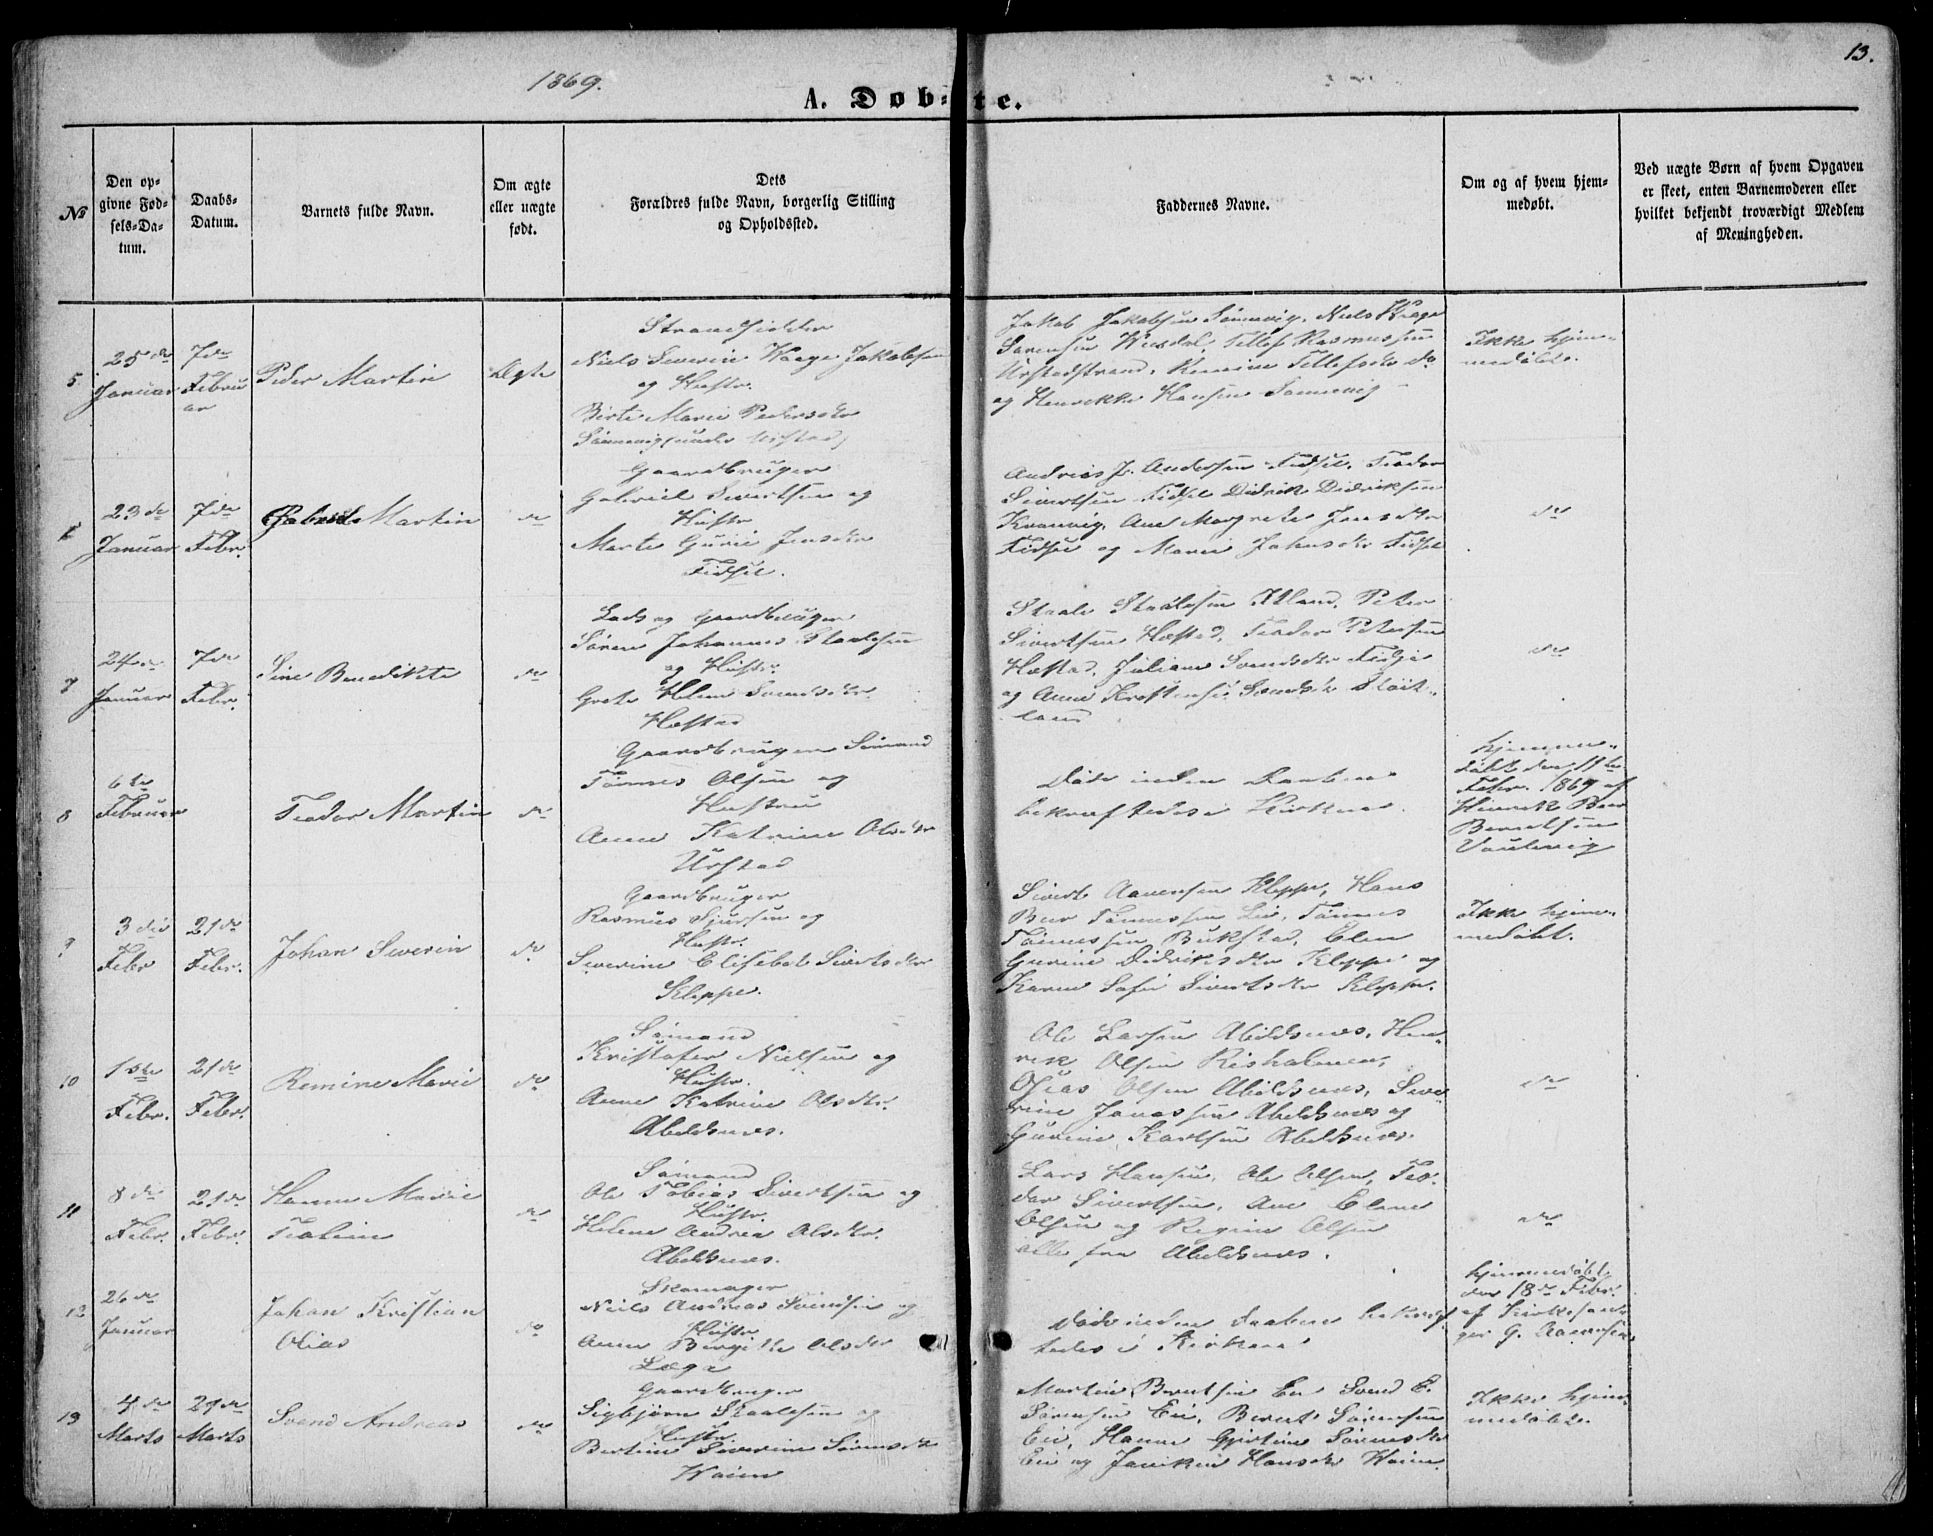 1869.
13.
A. Døb-te.
№
Den op-
givne Fød-
sels-Da-
tum.
Daabs-
Datum.
Barnets fulde Navn.
Om ægte
eller uægte
født.
Dets
Forældres fulde Navn, borgerlig Stilling
og Opholdssted.
Faddernes Navne.
Om og af hvem hjem-
medøbt.
Ved uægte Børn af hvem Opgaven
er skeet, enten Barnemoderen eller
hvilket bekjendt troværdigt Medlem
af Menigheden.
5
25de
Januar
7de
Febru
ar
Peder Martin
Ægte
Strandsidder
Niels Severin Waage Jakobsen
og Hustr.
Birte Marie Pedersdtr
Sønnevig (under Urstad)
Jakob Jakobsen Sønnevig, Niels
Sørensen Tellef Rasmussen
Urstadstrand, Tellefsdtr do
og Henrikke Hansen Sønnevig
Ikke hjem-
medøbt.
23de
Januar
7de
Febr.
Gabriel Martin
do
Gaardbruger
Gabriel Sivertsen og
Hustr
Marte Gurie Jensdtr
Fidsel.
Andreas J. Andersen Fidsel, Teodor
Sivertsen Fidsel Didrik Didriksen
Kraavig, Ane Margrete Jensdtr
Fidsel og Marie Jahnsdtr Fidsel
do
7
24de
Januar
7de
Febr.
Sine Benedikte
do
Lods og Gaardbruger
Søren Johannes Staalesen
og Hustr.
Grete Helene Svendsdtr.
Hæstad
Staale Staalesen Ytland, Peter
Sivertsen Hæstad, Teodor Petersen
Hæstad, Juliane Svendsdtr
og Anne Svendsdtr Sløit-
land
do
8
6te
Februar
Teodor Martin
do
Gaardbruger Sømand
Tønnes Olsen og
Hustru
Anne Katrine Olsdtr
Urstad
Døde inden Daaben
bekræftedes i Kirken.
hjemme-
døbt den 11te
Febr. 1869 af
Henrik Beer
Berntsen
9
3die
Febr
21de
Febr.
Johan Severin
do
Gaardbruger
Rasmus Sjursen og
Hustr.
Severine Elisebet Sivertsdtr
Kleppe.
Sivert Aanensen Kleppe, Hans
Beer Tønnessen Lie, Tønnes
Tønnessen Bukstad, Elen
Gurine Didriksdtr Kleppe og
Karen Sofie Sivertsdtr Kleppe.
Ikke hjem-
medøbt.
10
15de
Febr.
21de
Febr.
Remine Marie
do
Sømand
Kristofer Nielsen og
Hustr.
Anne Katrine Olsdtr.
Abeldsnes.
Ole Larsen Abeldsnes, Hen-
rik Olsen Risholmen,
Osias Olsen Abeldsnes, Seve-
rine Jonassen Abeldsnes og
Gurine Karlsen Abeldsnes.
do
11
8de
Febr.
21de
Febr.
Hanne Marie
Teoline
do
Sømand
Ole Tobias Sivertsen og
Hustr.
Helene Andrea Olsdtr.
Abeldsnes.
Lars Hansen, Ole Olsen, Teo-
dor Sivertsen, Ane Elene
Olsen og Regine Olsen
alle fra Abeldsnes.
do
12
26de
Januar
Johan Kristian
Olias
do
Skomager
Niels Andreas Svendsen og
Hustr.
Anne Birgitte Olsdtr
Døde inden Daaben bekræf-
tedes i Kirken
hjemmedøbt
den 18de Febr.
af Kirkesan-
ger G. Aanensen
13
4de
Marts
29de
Marts
Svend Andreas
do
Gaardbruger
Sigbjørn Staalesen og
Hustr.
Bertine Severine Sørensdtr
Martin Berntsen Eie Svend E.
Sørensen Eie, Bernt Sørensen
Eie, Hanne Gjertine Sørensdtr
Eie og Janiken Hansdtr
Ikke hjem-
medøbt.